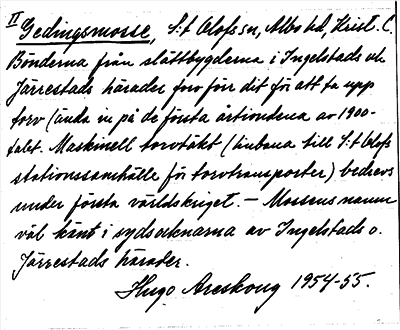 II
Gedingsmosse, S:t Olofs sn, Albo hd, Krist. l.
Bönderna från slättbygderna i Ingelstads och
Järrestads härader foro förr dit för att ta upp
torv (ända in på de första årtiondena av 1900-
talet. Maskinell torvtäkt (linbana till S:t Olofs
stationssamhälle för torvtransporter) bedrevs
under första världskriget. – Mossens namn
väl känt i sydsocknarna av Ingelstads o.
Järrestads härader.
Hugo Areskoug 1954-55.